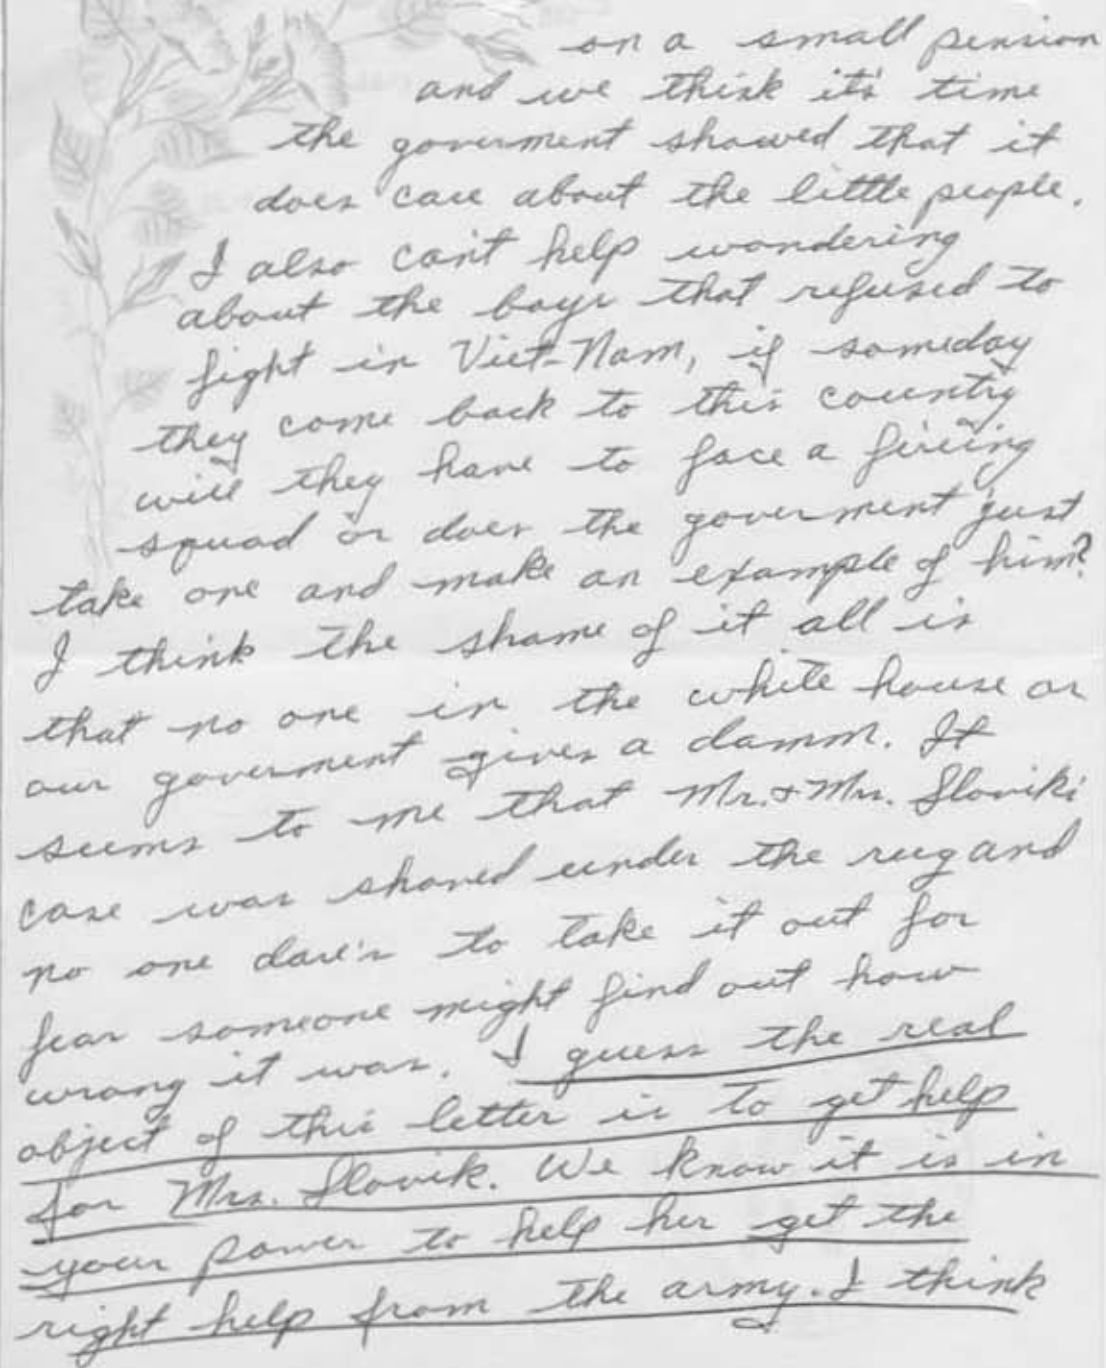 on a small pension
and we think it's time
the goverment showed that it
does care about the little people.
I also can't help wondering
about the boys that refused to
fight in Viet-Nam, if someday
they come back to this country
will they have to face a fireing
squad or does the goverment just
take one and make an example of him?
I think the shame of it all is
that no one in the white house or
our goverment gives a damm. It
seems to me that Mr. & Mrs. Slovik's
case was shoved under the rug and
no one dare's to take it out for
fear someone might find out how
wrong it was. I guess the real
object of this letter is to get help
for Mrs. Slovik. We know it is in
your power to help her get the
right help from the army. I think